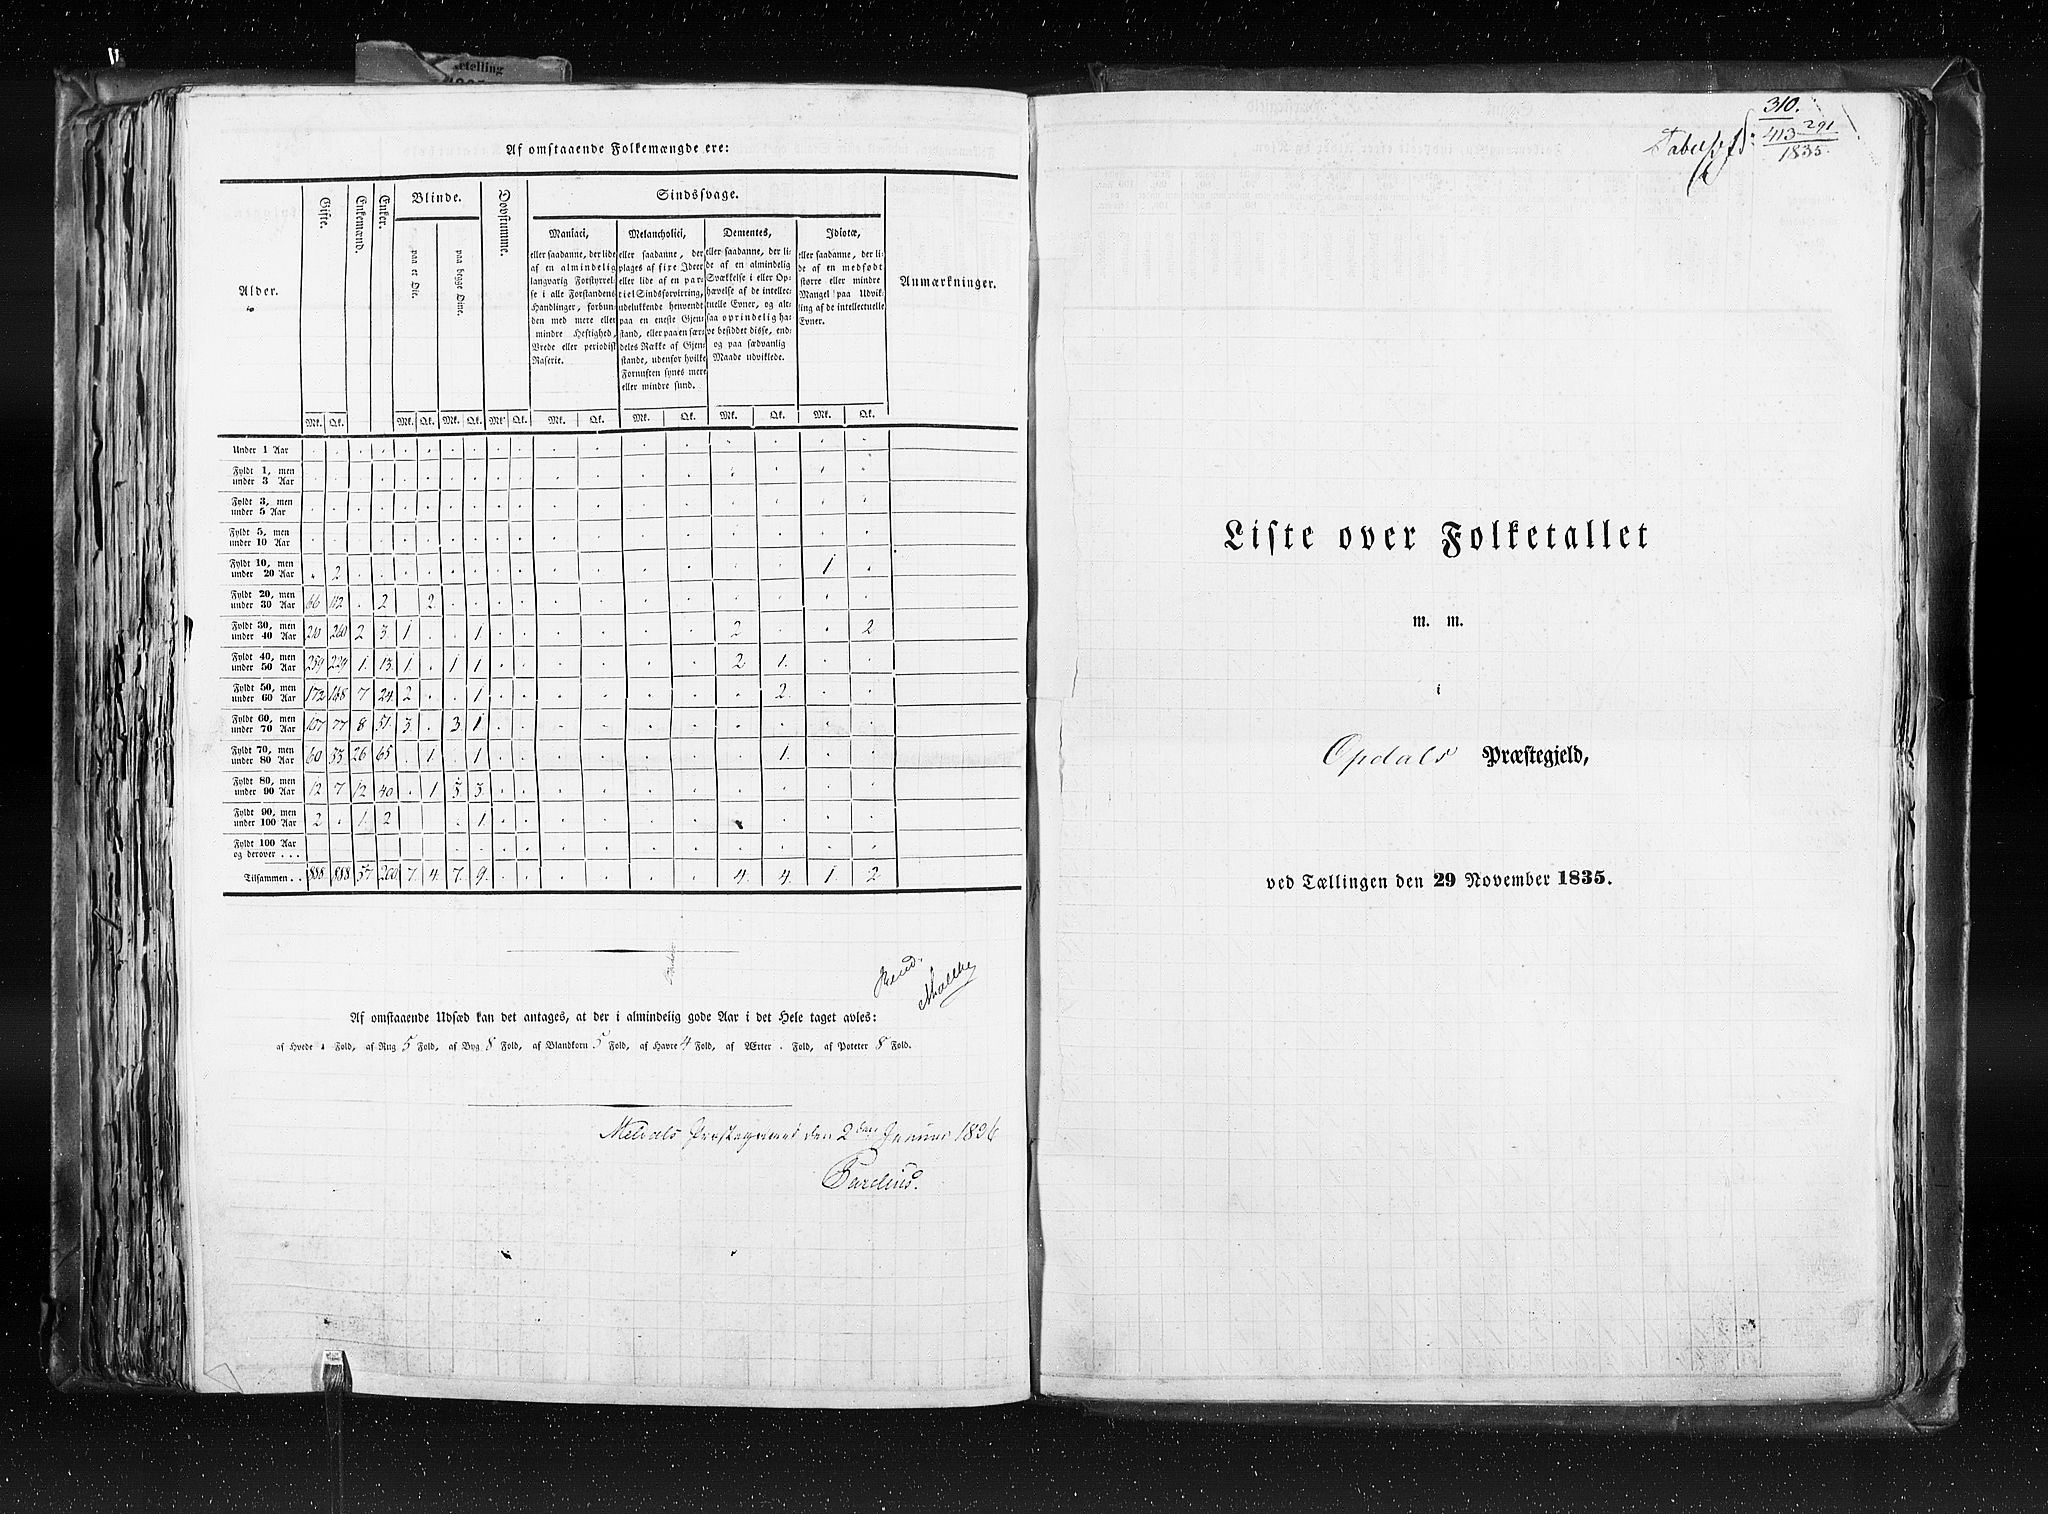 rtelling
Af omstaaende Folkemængde ere:
Alder.
Gifte.
Enkemænd.
Enker.
Blinde.
paa et Øie.
paa begge Øine.
Døvstumme.
Sindssvage.
Maniaci,
eller saadanne, der lide
af en almindelig
langvarig Forstyrrel-
se i alle Forstandens
Handlinger, forbun-
den med mere eller
mindre Heftighed,
Vrede eller periodisk
Raserie.
Melancholici,
eller saadanne, der
plages af fixe Ideer
eller lide af en par-
tiel Sindsforvirring,
udelukkende henvendt
paa en eneste Gjen-
stand, eller paa en sær-
deles Række af Gjen-
stande, udenfor hvilke
Fornuften synes mere
eller mindre sund.
Dementes,
eller saadanne, der li-
de af en almindelig
Svækkelse i eller Op-
hævelse af de intellec-
tuelle Evner, og alt-
saa oprindelig ha-
ve besiddet disse, end-
og paa sædvanlig
Maade udviklede.
Idiotæ,
eller saadanne, der li-
de af en medfødt
større eller mindre
Mangel paa Udvik-
ling af de intellectuelle
Evner.
Anmærkninger.
Mk. Qk. Mk. Qk. Mk. Qk. Mk. Qk. Mk. Qk. Mk. Qk. Mk. Qk. Mk. Qk.
Under 1 Aar
Fyldt 1, men
under 3 Aar
Fyldt 3, men
under 5 Aar
Fyldt 5, men
under 10 Aar
Fyldt 10, men
under 20 Aar . 2 1
Fyldt 20, men
under 30 Aar 66 112 . 2 2
Fyldt 30, men
under 40 Aar 210 260 2 3 1 . . 1 2 2
Fyldt 40, men
under 50 Aar 259 229 1. 13. 1 . 1 1 2 1.
Fyldt 50, men
under 60 Aar 172 168 7 24 2 . . 1 2.
Fyldt 60, men
under 70 Aar 107 77 8 51. 3. . 3. 1
Fyldt 70, men
under 80 Aar 60 33 26 65 . 1. . 1 1.
Fyldt 80, men
under 90 Aar 12 7 12 40 . 1 3 3.
Fyldt 90, men
under 100 Aar 2 . 1. 2 1.
Fyldt 100 Aar
og derover . . .
Tilsammen . . 888 888 57 200 7. 4. 7. 9. 4. 4. 1. 2.
Af omstaaende Udsæd kan det antages, at der i almindelig gode Aar i det Hele taget avles:
af Hvede . Fold, af Rug 5 Fold, af Byg 8 Fold, af Blandkorn 5 Fold, af Havre 4 Fold, af Ærter . Fold, af Poteter 8 Fold.
Meldals Præstegaard den 2den Januar 1836
310.
Tabel
413 291
1835.
Liste over Folketallet
m. m.
i
Opdals Præstegjeld,
ved Tællingen den 29 November 1835.